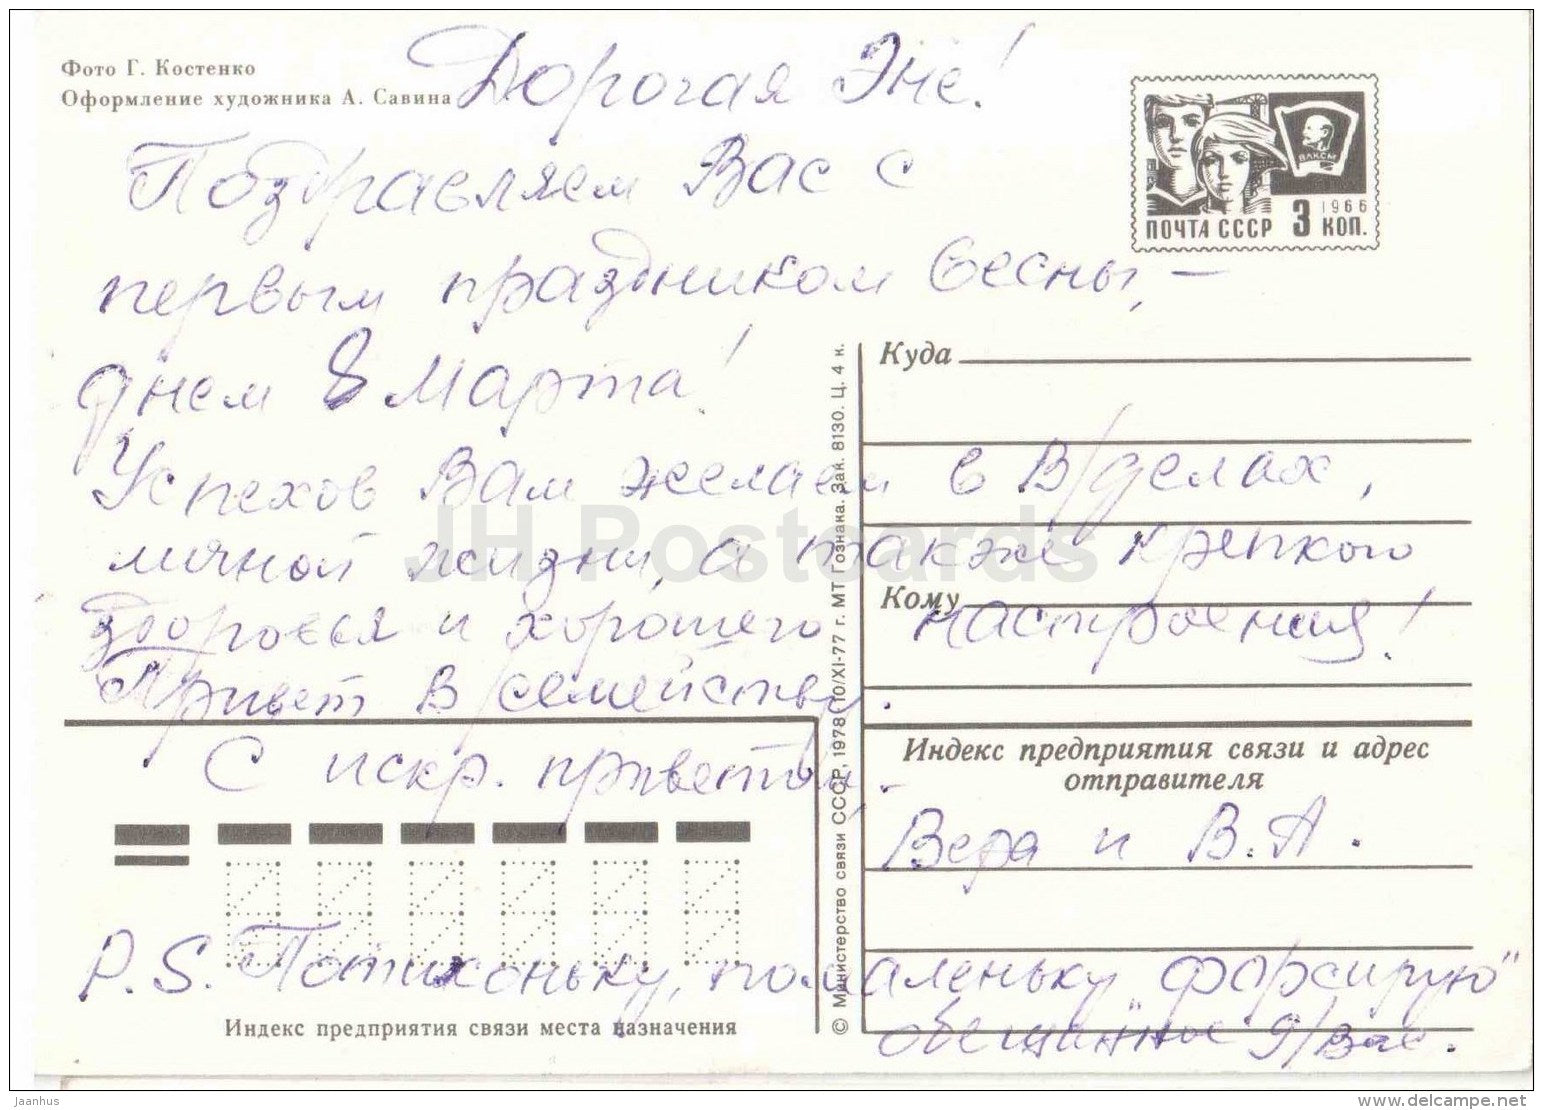 Фото Г. Костенко
Оформление художника А. Савина
Дорогая Эне!
Поздравляем Вас с
первым праздником весны, —
днем 8 Марта!
Успехов Вам желаем в В/делах,
личной жизни, а также крепкого
здоровья и хорошего настроения!
Привет В/семейству.
С искр. приветом.
Вера и В. А.
P.S. Потихоньку, помаленьку „форсирую"
обещанное д/Вас.
ПОЧТА СССР 3 КОП.
1966
ВЛКСМ
Куда
Кому
Индекс предприятия связи и адрес
отправителя
Индекс предприятия связи места назначения
© Министерство связи СССР, 1978 (10/XI-77 г. МТ Гознака. Зак. 8130. Ц. 4 к.
JH Postcards
Jaanhus
www.delcampe.net